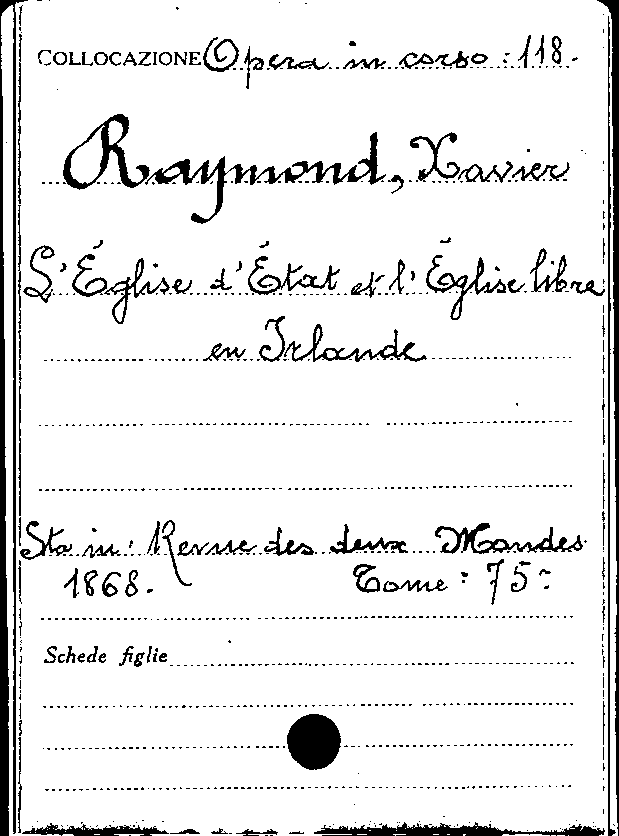 COLLOCAZIONE Opera in corso : 118.
Raymond, Xavier
L'Église d'État et l'Église libre
en Irlande
Sta in: Revue des deux Mondes
1868. Tome : 75-
Schede figlie